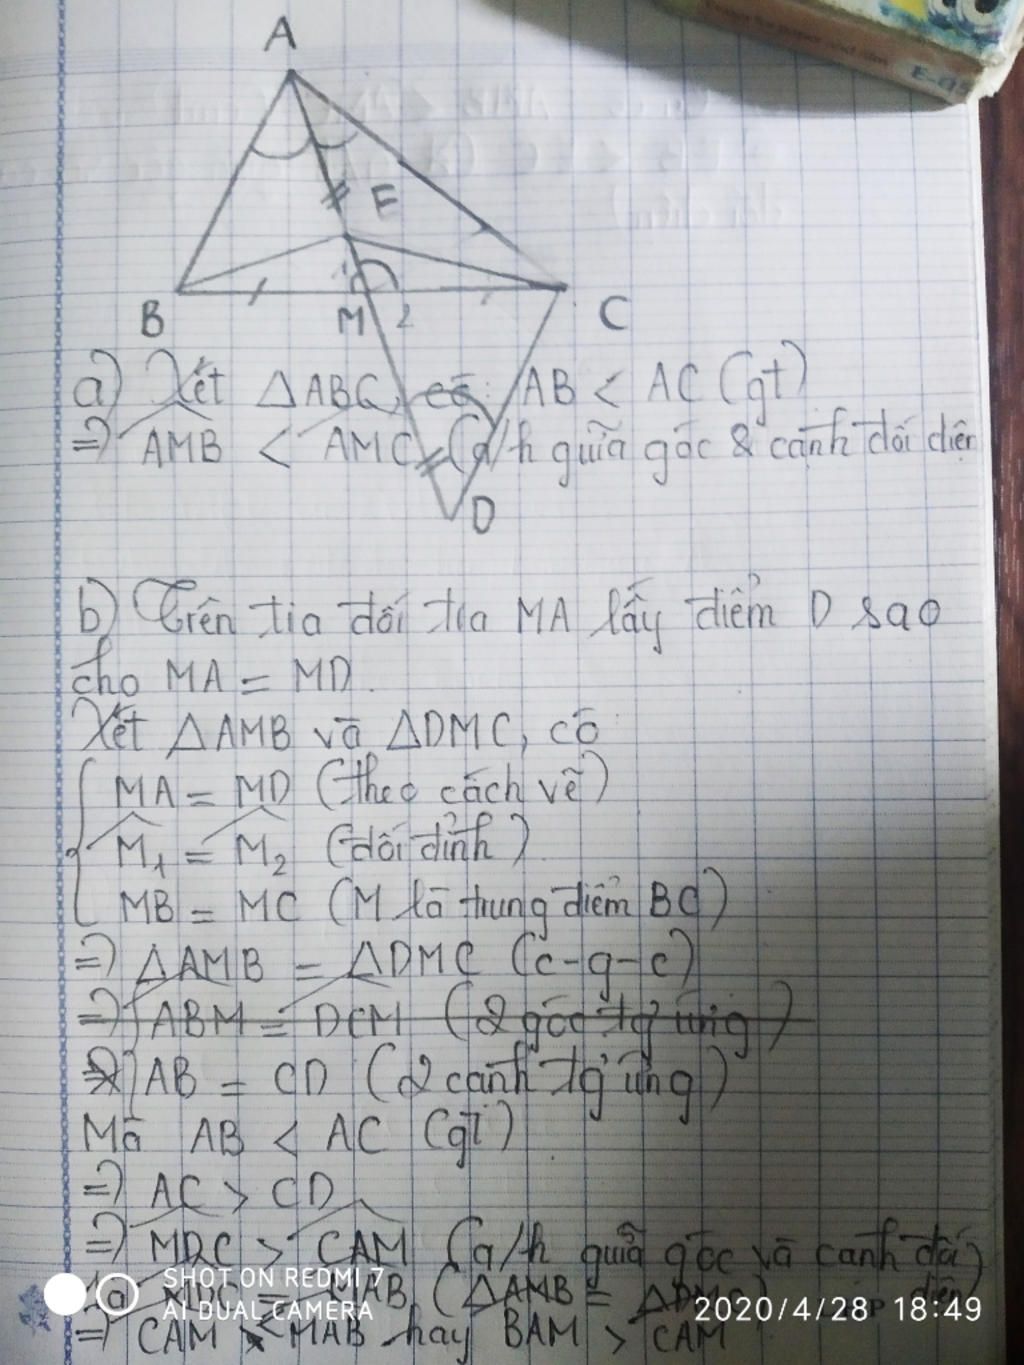 A
E
B
M
2
C
a) Xét △ABC, có: AB < AC (gt)
=) AMB < AMC (q/h giữa góc & cạnh đối diện
D
b) Trên tia đối tia MA lấy điểm D sao
cho MA = MD.
Xét △AMB và △DMC, có
MA = MD (theo cách vẽ)
M1 = M2 (đối đỉnh)
MB = MC (M là trung điểm BC)
=) △AMB = △DMC (c-g-c)
=) ABM = DCM (2 góc tg ứng)
AB = CD (2 cạnh tg ứng)
Mà AB < AC (gt)
=) AC > CD
=) MDC > CAM (q/h giữa góc và cạnh đối
diện)
MDC = MAB (△AMB = △DMC)
=) CAM < MAB hay BAM > CAM
SHOT ON REDMI 7
AI DUAL CAMERA
2020/4/28 18:49